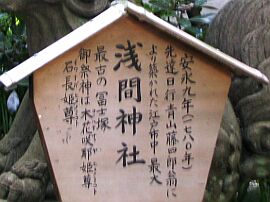 安永九年(一七八〇年)
先達の行青山藤四郎翁に
より築かれた江戸市中最大
浅間神社
最古の冨士塚
御祭神は木花咲耶姫尊
石長姫尊